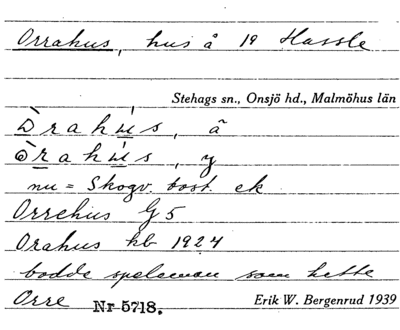 Orrahus, hus å 19 Hassle
Stehags sn., Onsjö hd., Malmöhus län
nu = Skogv. bost. ek
Orrehus G5
Orahus hb 1924
bodde spelaman som hette
Orre Nr 5718. Erik W. Bergenrud 1939